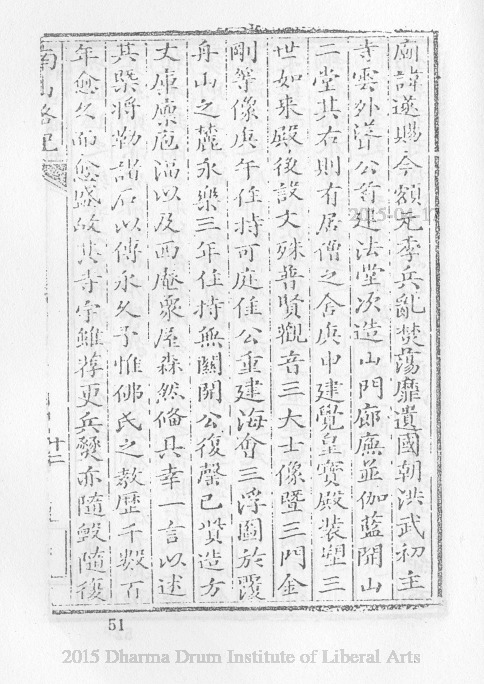 廟諱遂賜今額元季兵亂焚蕩靡遺國朝洪武初主
寺雲外澤公首建法堂次造山門廊廡並伽藍開山
二堂其右則有居僧之舍庚申建覺皇寶殿裝塑三
世如来殿後設文殊普賢觀音三大士像暨三門金
剛等像庚午住持可庭佳公重建海會三浮圖於霞
舟山之麓永樂三年住持無關開公復罄己貲造方
丈庫廩庖湢以及西庵衆屋森然俻具幸一言以述
其槩將勒諸石以傳永久予惟佛氏之教歴千數百
年愈久而愈盛故其寺宇雖荐更兵燹亦隨毀隨復
南山畧記
十二
51
2015-04-1
2015 Dharma Drum Institute of Liberal Arts